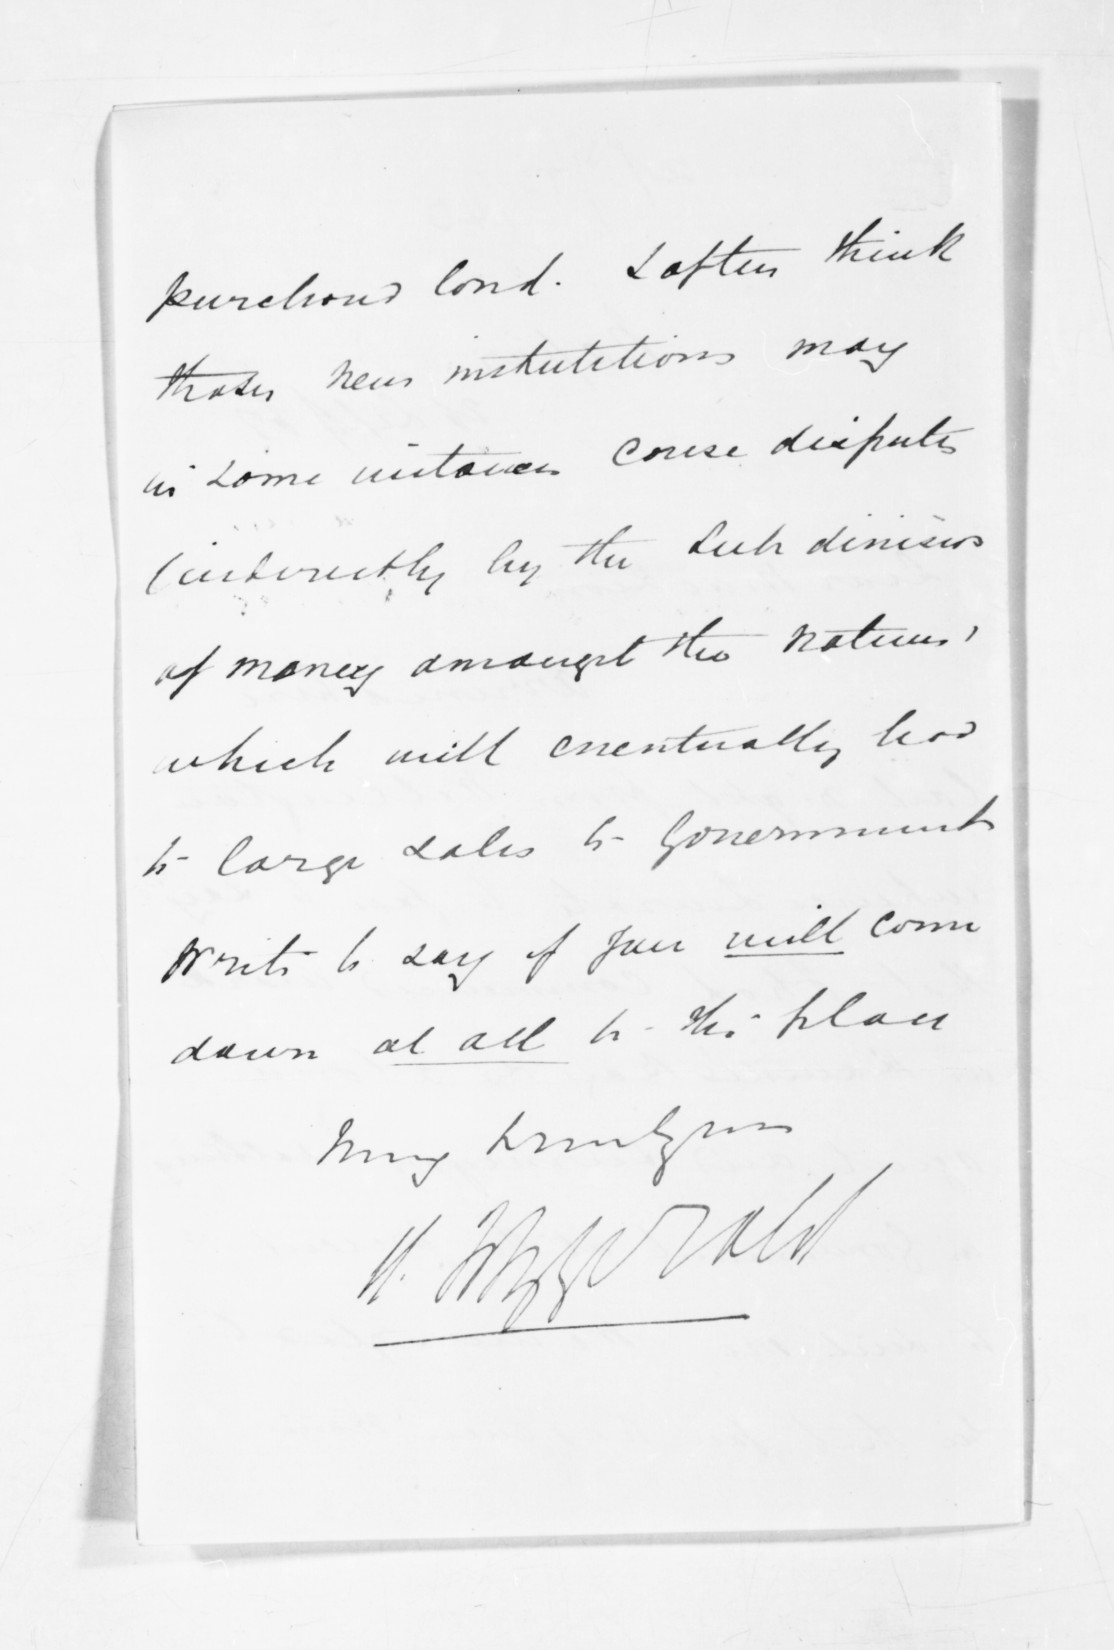 purchased land. I often think
these new institutions may
in some instances cause disputes
(indirectly by the sub division
of money amongst the natives)
which will eventually lead
to large sales to Government
Write to say if you will come
down at all to this place
Very truly yours
H. FitzGerald